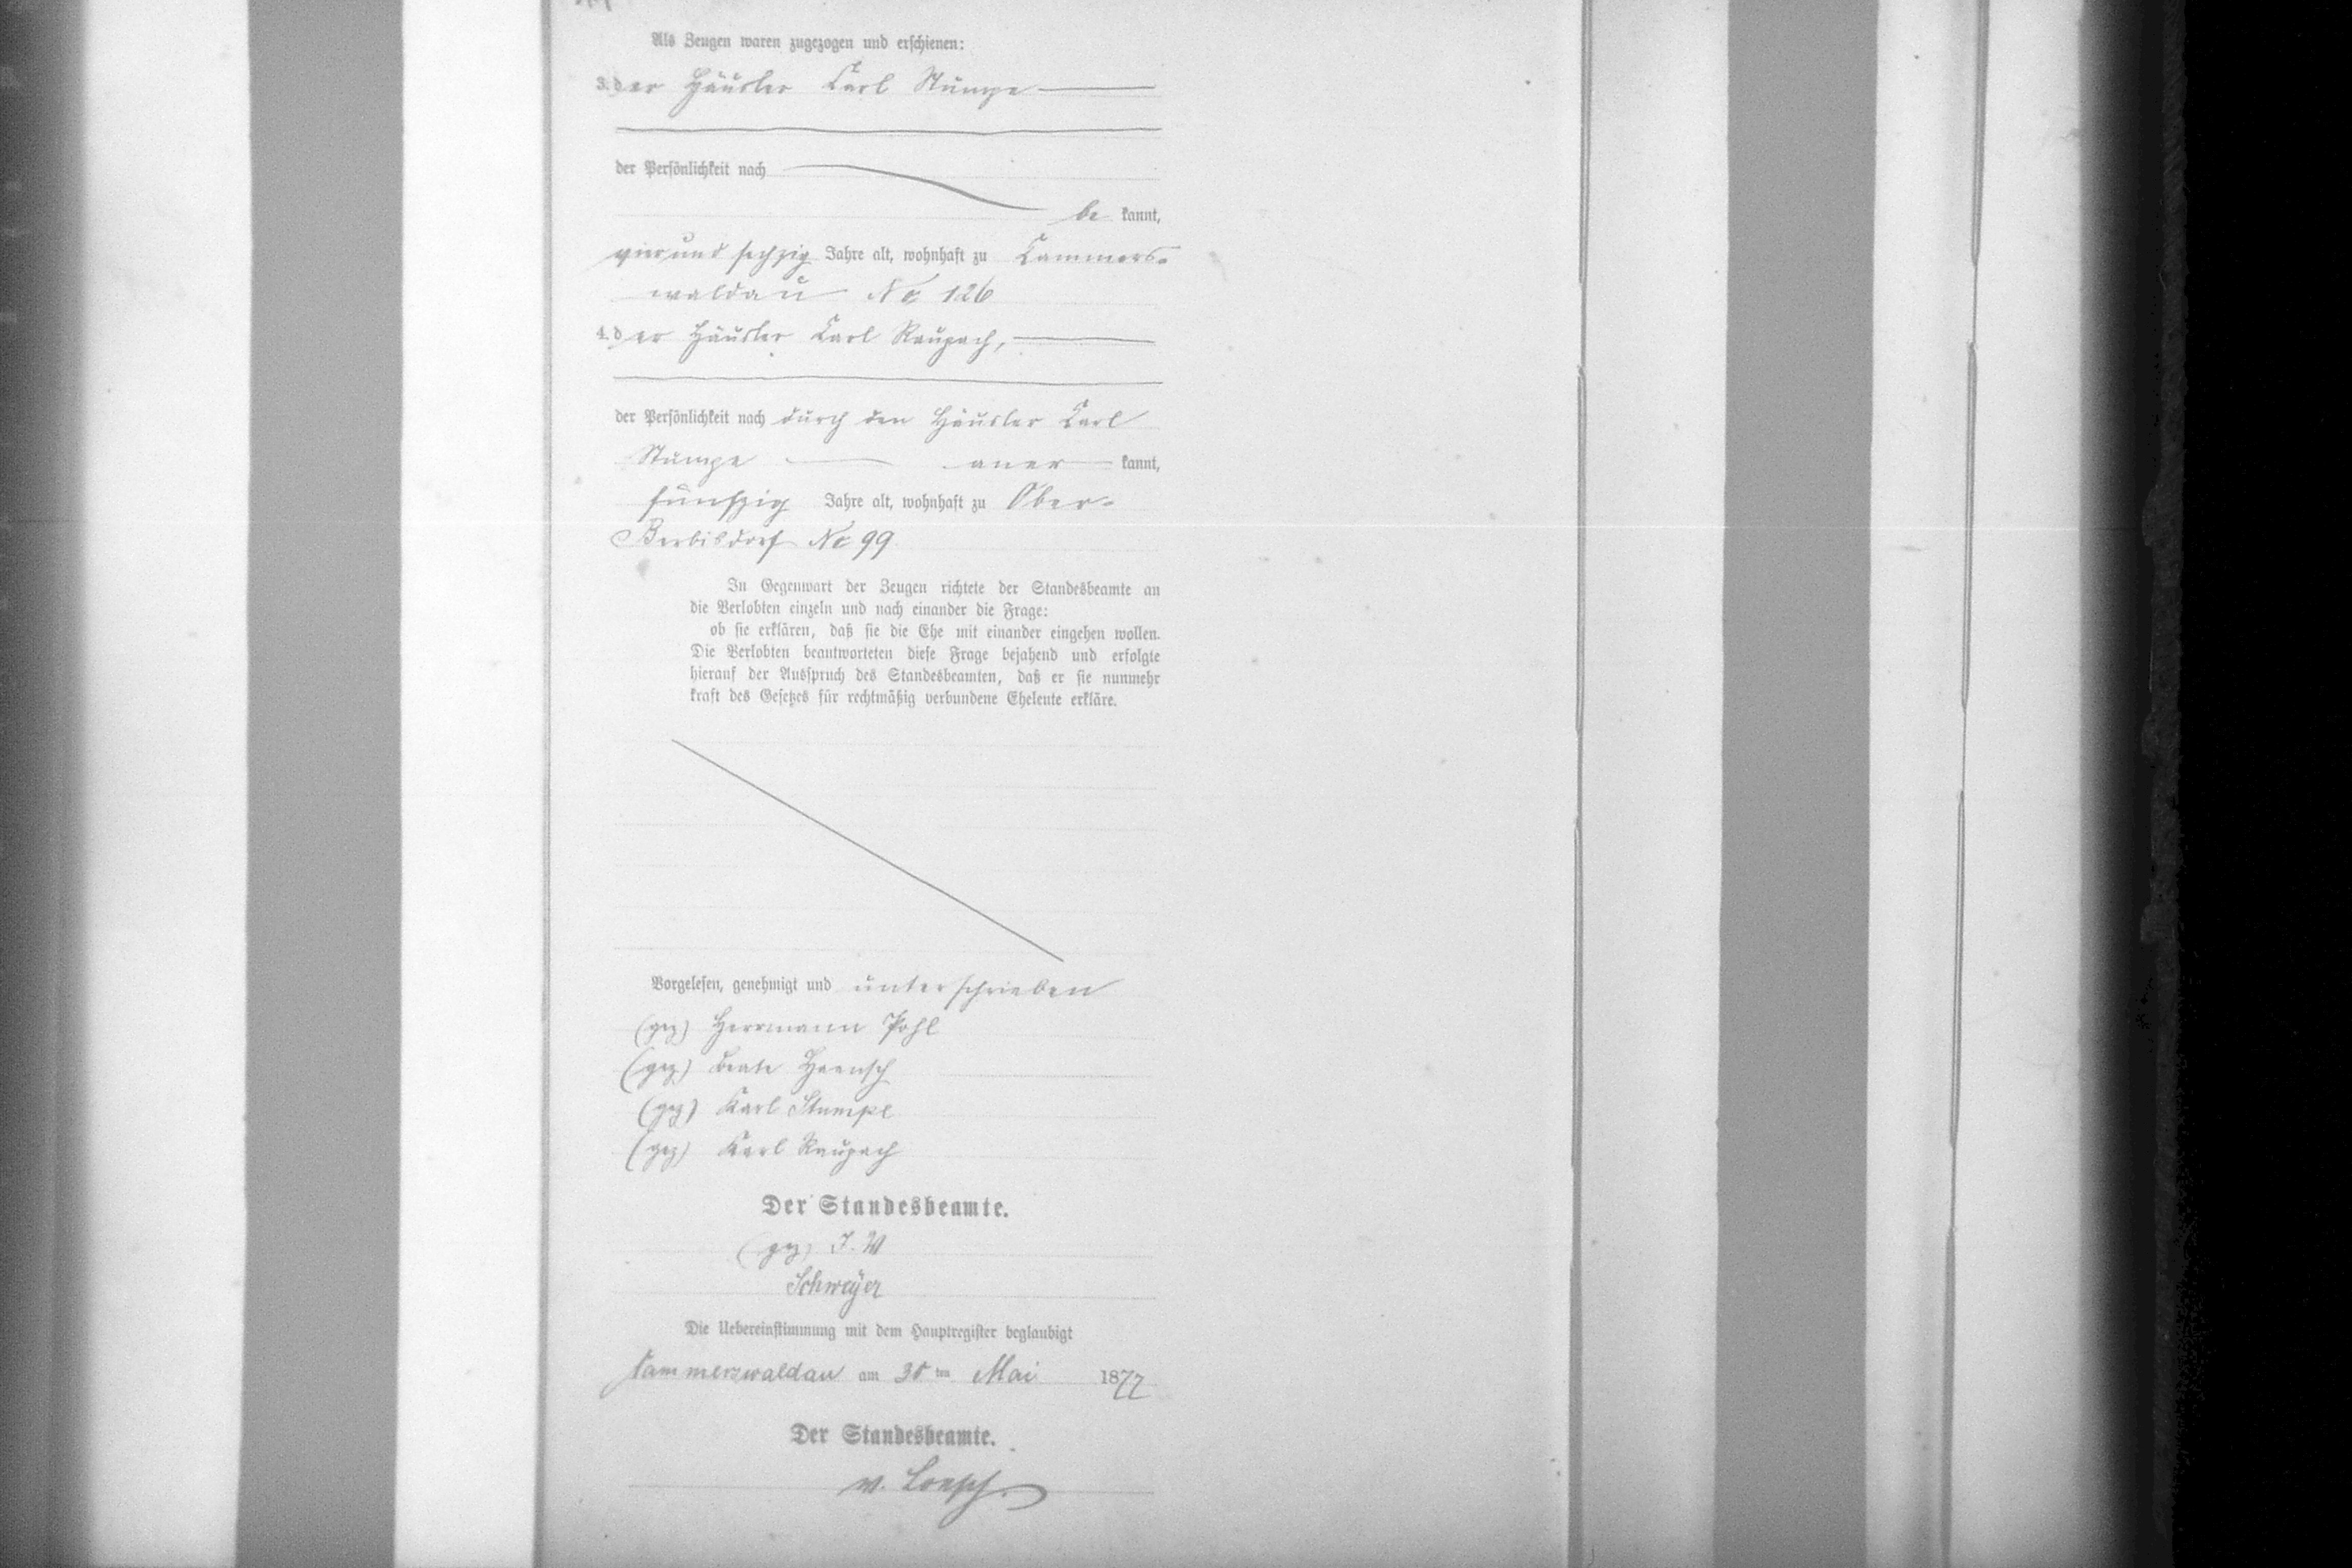 Als Zeugen waren zugezogen und erschienen:
3. der Häusler Carl Stumpe
der Persönlichkeit nach
be kannt,
vier und sechzig Jahre alt, wohnhaft zu Cammers-
waldau No 126
4. der Häusler Carl Raupach,
der Persönlichkeit nach durch den Häusler Carl
Stumpe aner kannt,
fünfzig Jahre alt, wohnhaft zu Ober-
Berbisdorf No 99
In Gegenwart der Zeugen richtete der Standesbeamte an
die Verlobten einzeln und nach einander die Frage:
ob sie erklären, daß sie die Ehe mit einander eingehen wollen.
Die Verlobten beantworteten diese Frage bejahend und erfolgte
hierauf der Ausspruch des Standesbeamten, daß er sie nunmehr
kraft des Gesetzes für rechtmäßig verbundene Eheleute erkläre.
Vorgelesen, genehmigt und unterschrieben
(gez) Herrmann Pohl
(gez) Beate Haensch
(gez) Karl Stumpe
(gez) Karl Raupach
Der Standesbeamte.
(gez) I. V.
Schweÿer
Die Uebereinstimmung mit dem Hauptregister beglaubigt
Cammerswaldau am 30 ten Mai 1877
Der Standesbeamte.
v. Loesch.